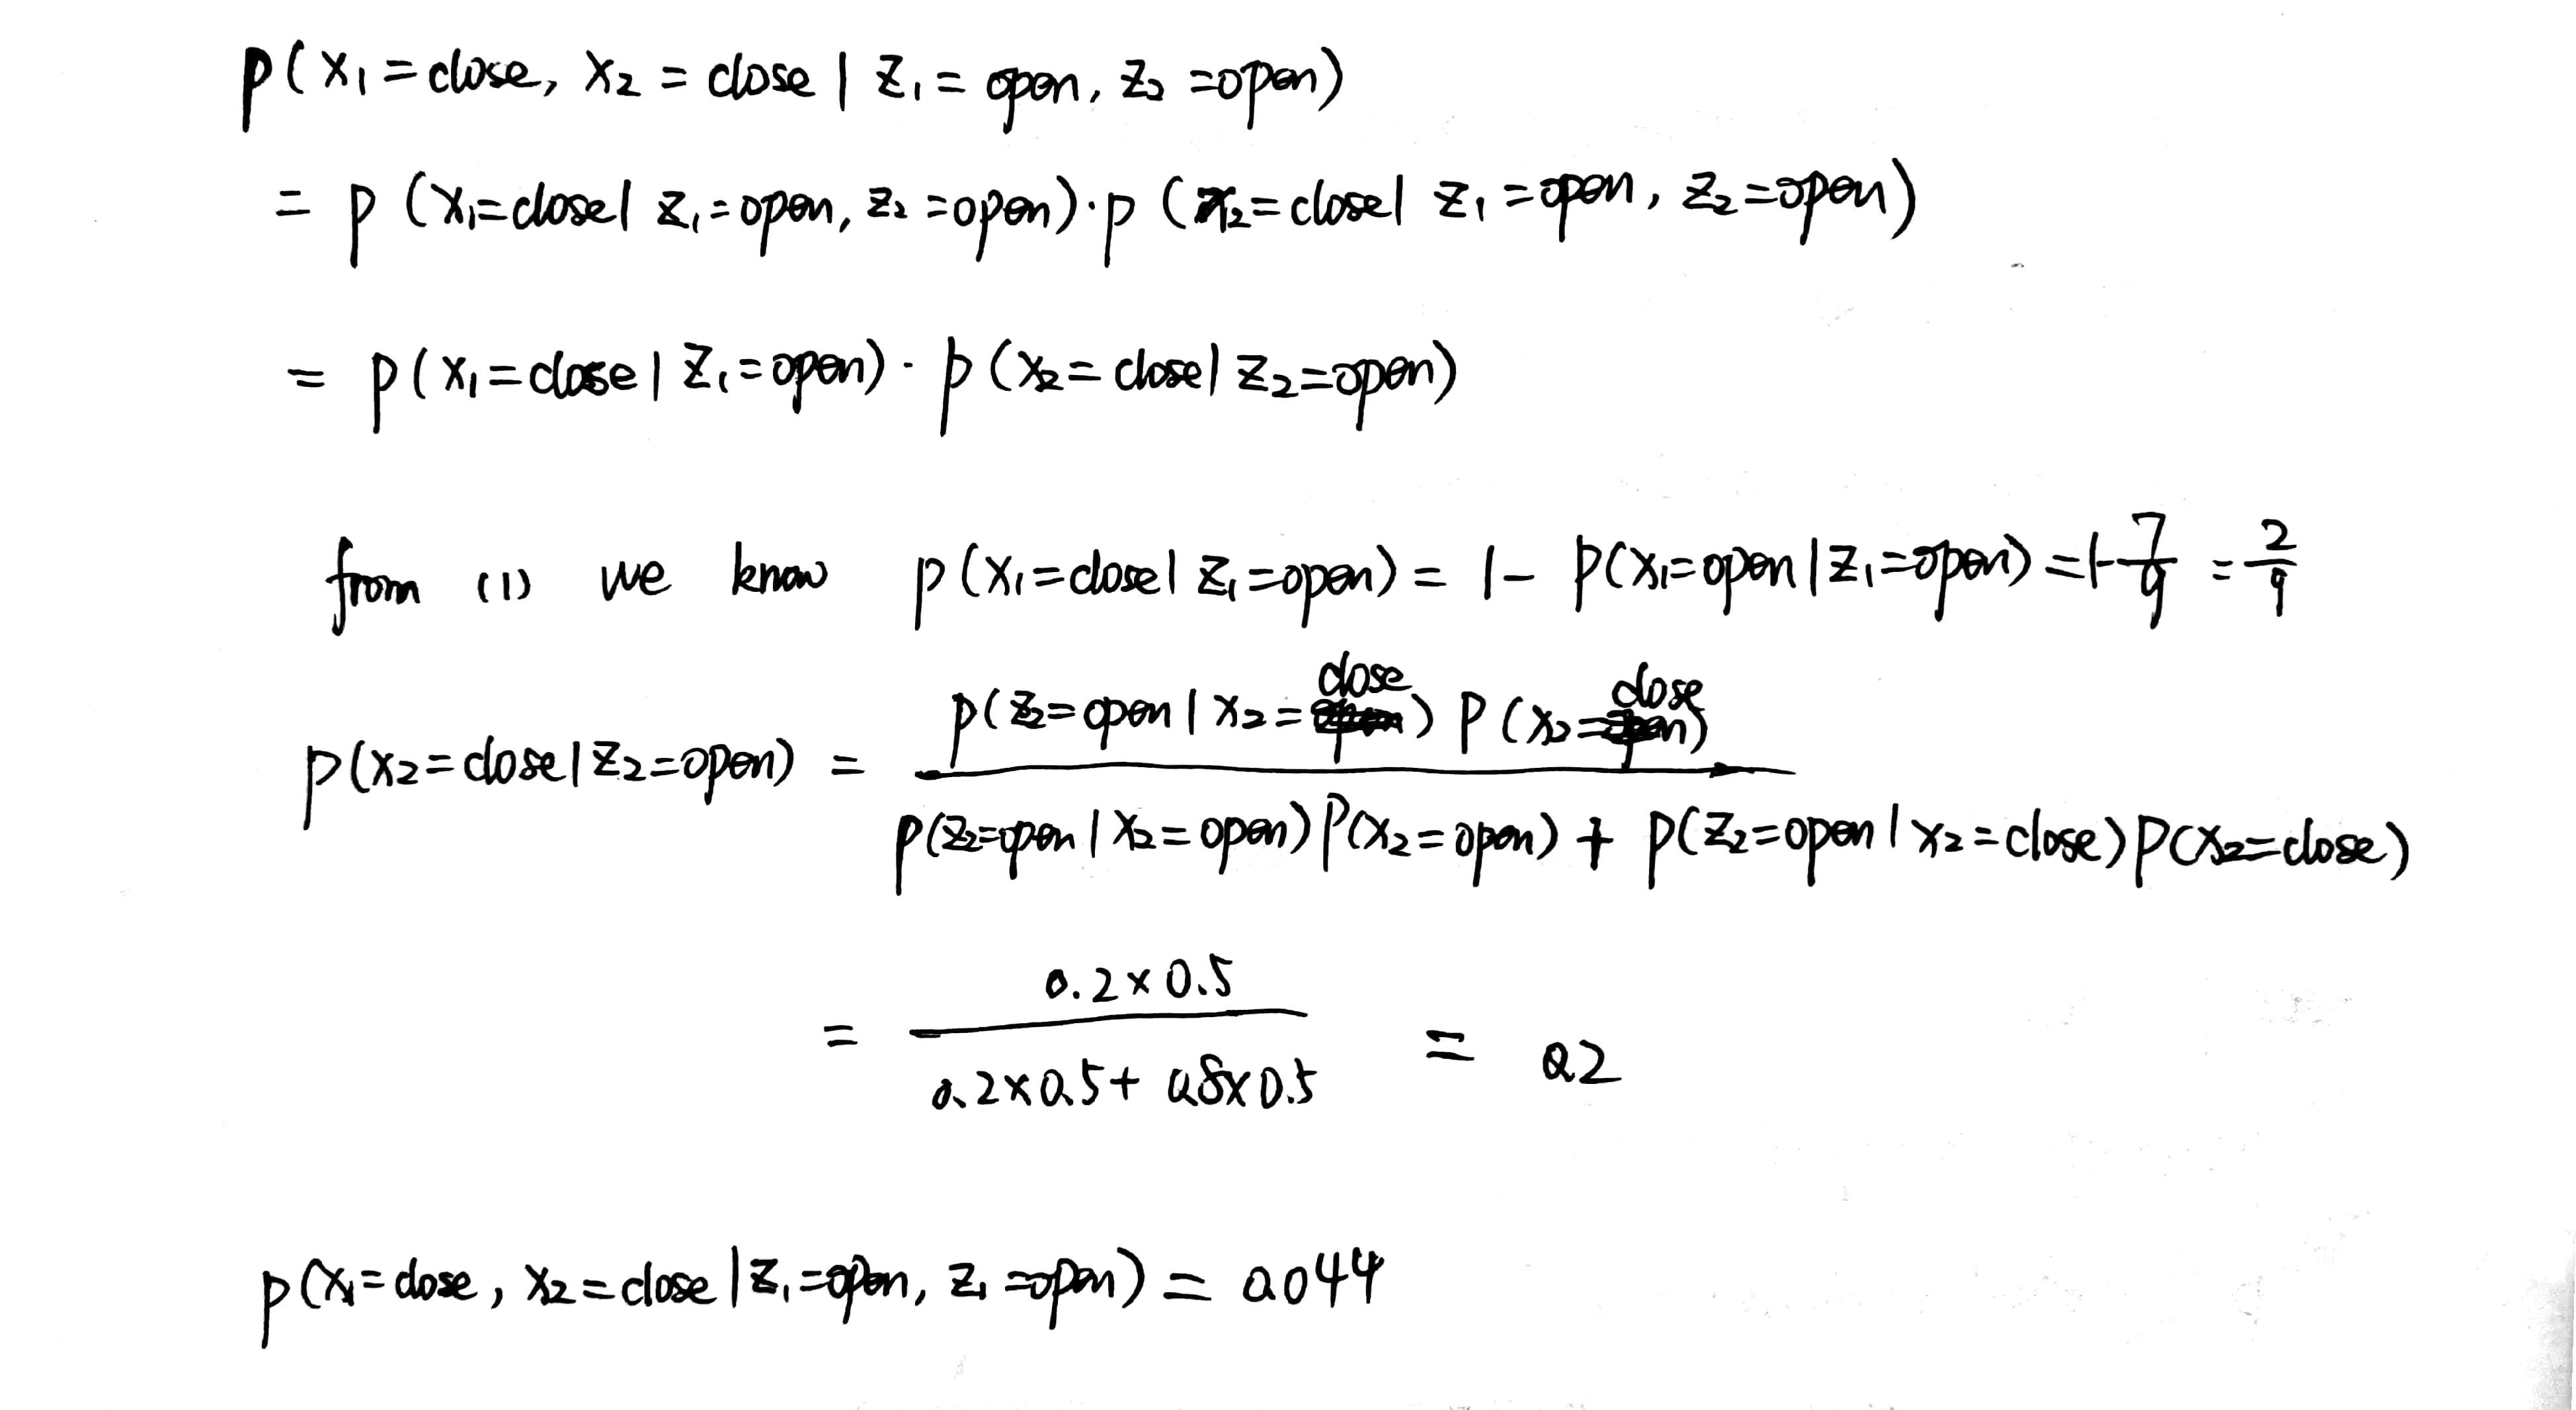 p(x₁=close, x₂ = close | z₁ = open, z₂ =open)
= p (x₁=close| z₁=open, z₂ =open)·p (x₂=close| z₁ =open, z₂=open)
= p(x₁=close | z₁=open) · p (x₂= close| z₂=open)
from (1) we know p(x₁=close| z₁=open) = 1- p(x₁=open | z₁=open) =1-7/9 = 2/9
p(x₂=close| z₂=open) = p(z₂=open | x₂= close) p(x₂= close) / p(z₂=open | x₂=open) p(x₂=open) + p(z₂=open | x₂=close) p(x₂=close)
= 0.2×0.5 / 0.2×0.5+ 0.8×0.5 = 0.2
p(x₁=close, x₂=close | z₁=open, z₁=open) = 0.044